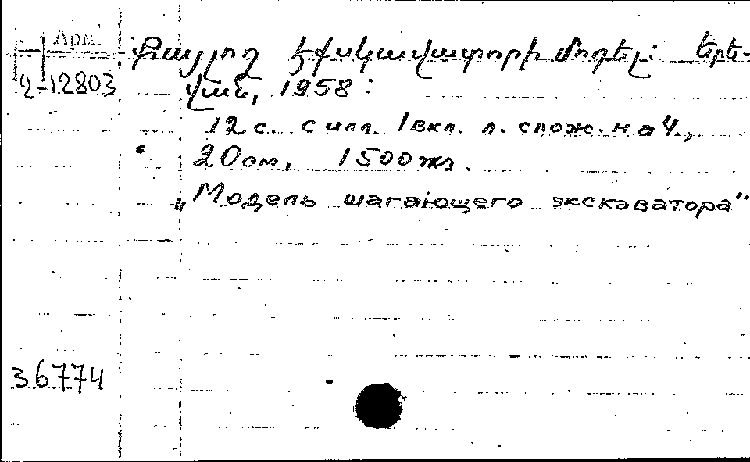 Арм.
Քայլող էքսկավատորի մոդել: Երե-
Վ-12803
վան, 1958:
12 с. с илл. 1 вкл. л. слож. на 4,
20 см, 1500 экз.
„Модель шагающего экскаватора"
36774